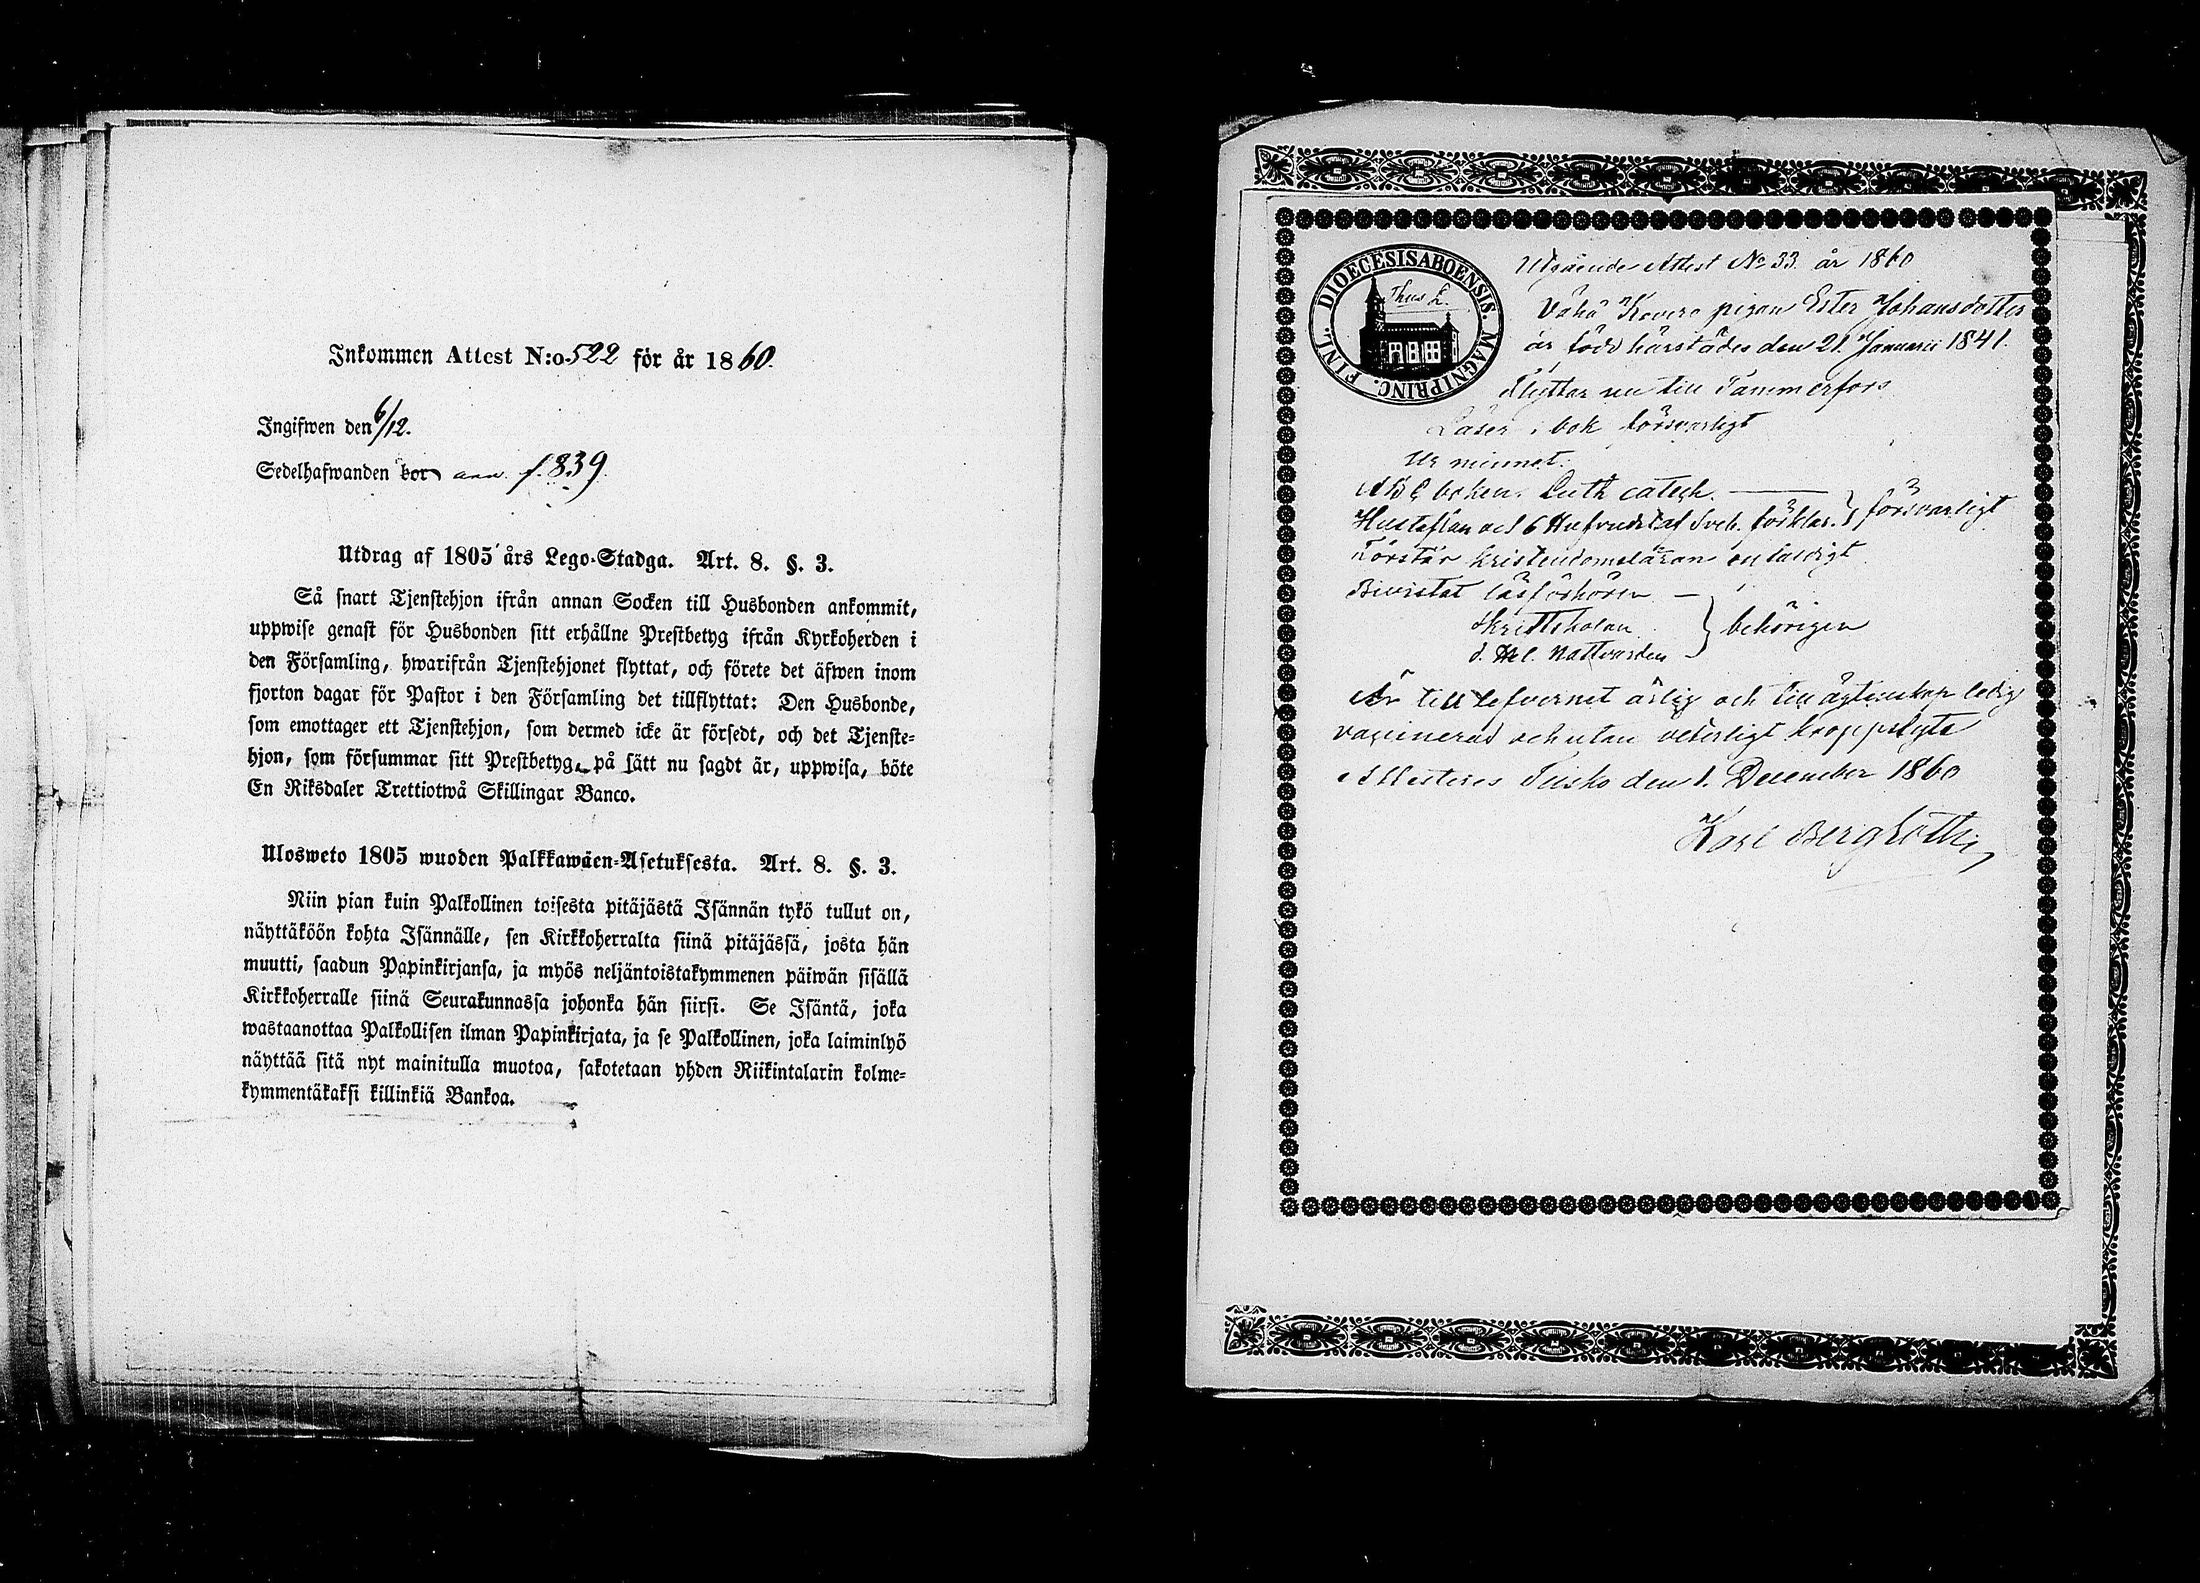 Inkommen Attest N:o 522 för år 1860.
Ingifwen den 6/12.
Sedelhafwanden bor ann. f. 839.
Utdrag af 1805 års Lego-Stadga. Art. 8. §. 3.
Så snart Tjenstehjon ifrån annan Socken till Husbonden ankommit,
uppwise genast för Husbonden sitt erhållne Prestbetyg ifrån Kyrkoherden i
den Församling, hwarifrån Tjenstehjonet flyttat, och förete det äfwen inom
fjorton dagar för Pastor i den Församling det tillflyttat: Den Husbonde,
som emottager ett Tjenstehjon, som dermed icke är försedt, och det Tjenste-
hjon, som försummar sitt Prestbetyg, på sätt nu sagdt är, uppwisa, böte
En Riksdaler Trettiotwå Skillingar Banco.
Ulosweto 1805 wuoden Palkkawäen-Asetuksesta. Art. 8. §. 3.
Niin pian kuin Palkollinen toisesta pitäjästä Isännän tykö tullut on,
näyttäköön kohta Isännälle, sen Kirkkoherralta siinä pitäjässä, josta hän
muutti, saadun Papinkirjansa, ja myös neljäntoistakymmenen päiwän sisällä
Kirkkoherralle siinä Seurakunnassa johonka hän siirsi. Se Isäntä, joka
wastaanottaa Palkollisen ilman Papinkirjata, ja se Palkollinen, joka laiminlyö
näyttää sitä nyt mainitulla muotoa, sakotetaan yhden Riikintalarin kolme-
kymmentäkaksi killinkiä Bankoa.
DIOECESIS ABOENSIS. MAGNI PRINC. FINL.
Utgående Attest No 33. år 1860
Vähä Kovero pigan Ester Johansdotter
är född härstädes den 21. Januarii 1841.
Flyttar nu till Tammerfors
Läser i bok försvarligt
Ur minnet.
ABC boken. Luth catech.
Hustaflan och 6 Hufvudst af Sveb. förklar. } försvarligt
Förstår kristendomsläran enfaldigt
Bivistat läsförhören
Skriftskolan } behörigen
d. Hel. Nattvarden
Är till lefvernet ärlig och till ägtenskap ledig
vaccinerad och utan veterligt kroppslyte
Attesteres Tusko den 1. December 1860
Karl Bergroth